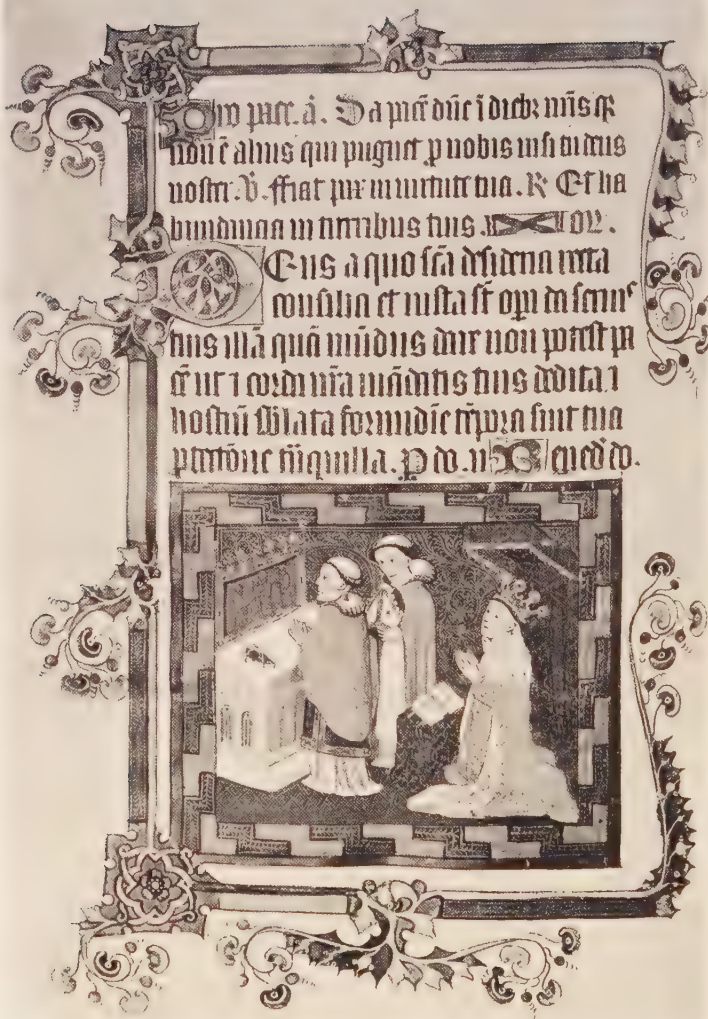 Pro pace. a̅. Da pace̅ dn̅e i̅ diebꝫ nr̅is qꝛ
non e̅ alius qui pugnet ꝓ nobis nisi tu deus
noster. V̅. ffiat pax in uirtute tua. R Et ha
bundancia in turribus tuis. OR.
DEus a quo sc̅a desideria recta
consilia et iusta st̅ op̅a da serui
tuis illa̅ qua̅ mu̅dus dare non potest pa
ce̅ ut ⁊ corda nr̅a ma̅datis tuis dedita ⁊
hostiu̅ sublata formidi̅e te̅pora sint tua
ꝓtecto̅ne tr̅nquilla. P do. n B ened̅ do.